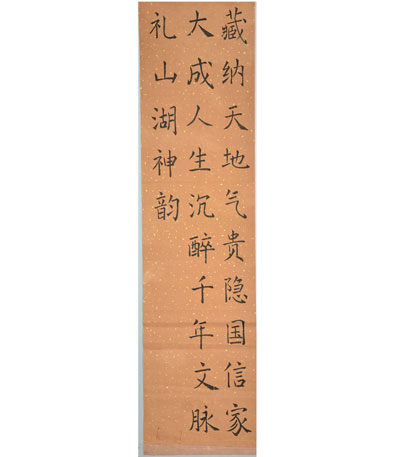 藏纳天地气贵隐国信家
大成人生沉醉千年文脉
礼山湖神韵